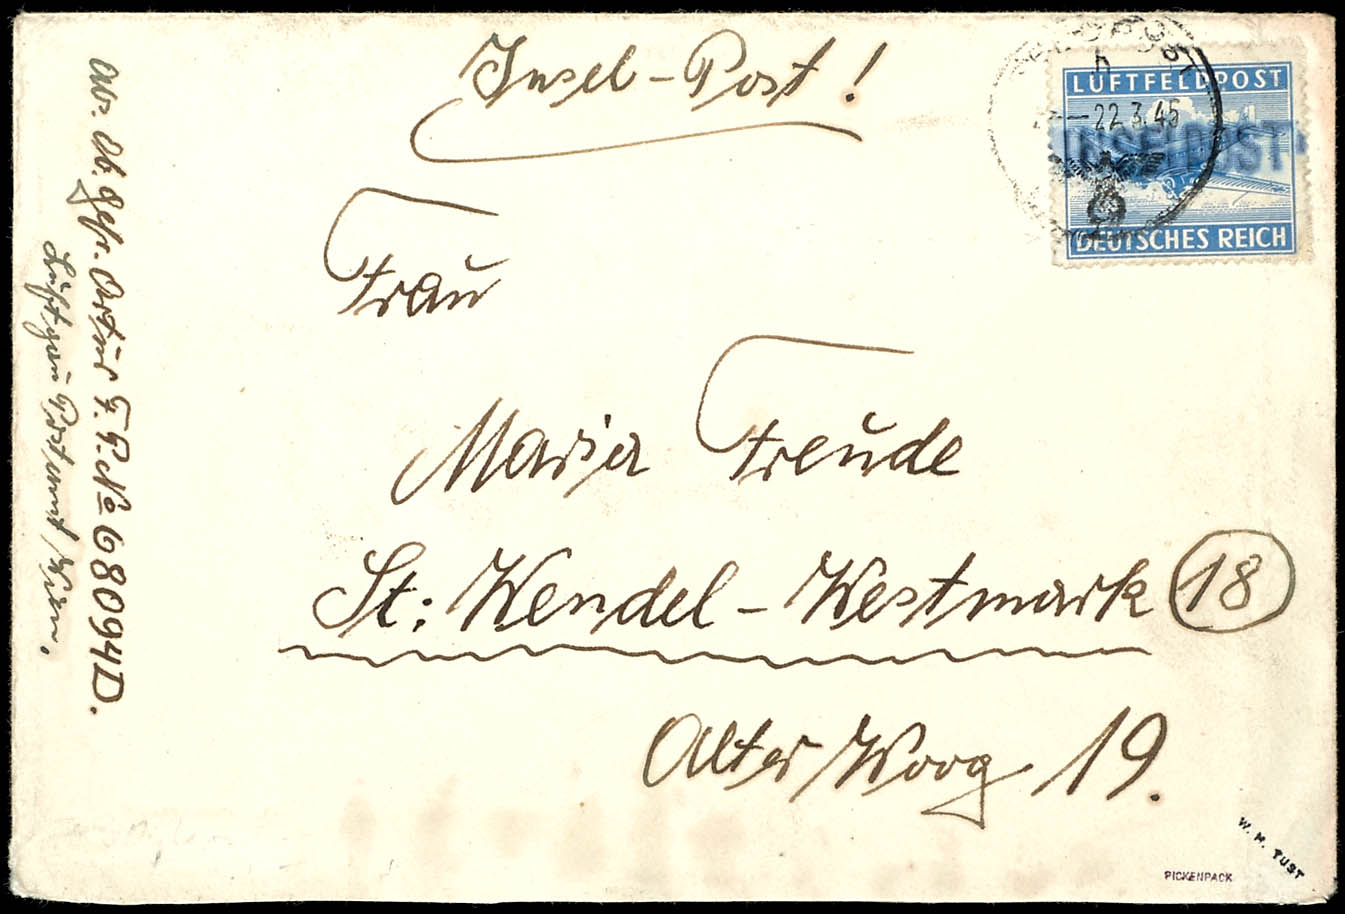 Insel-Post!
FELDPOST
h
LUFTFELDPOST
22.3.45
INSELPOST
DEUTSCHES REICH
Frau
Maria Freude
St. Wendel - Westmark 18
Alter Woog 19.
Abs. Ob. Gefr. Artur F.P. No 68094 D.
Luftgau Postamt, Wien.
W. M. TUST
PICKENPACK